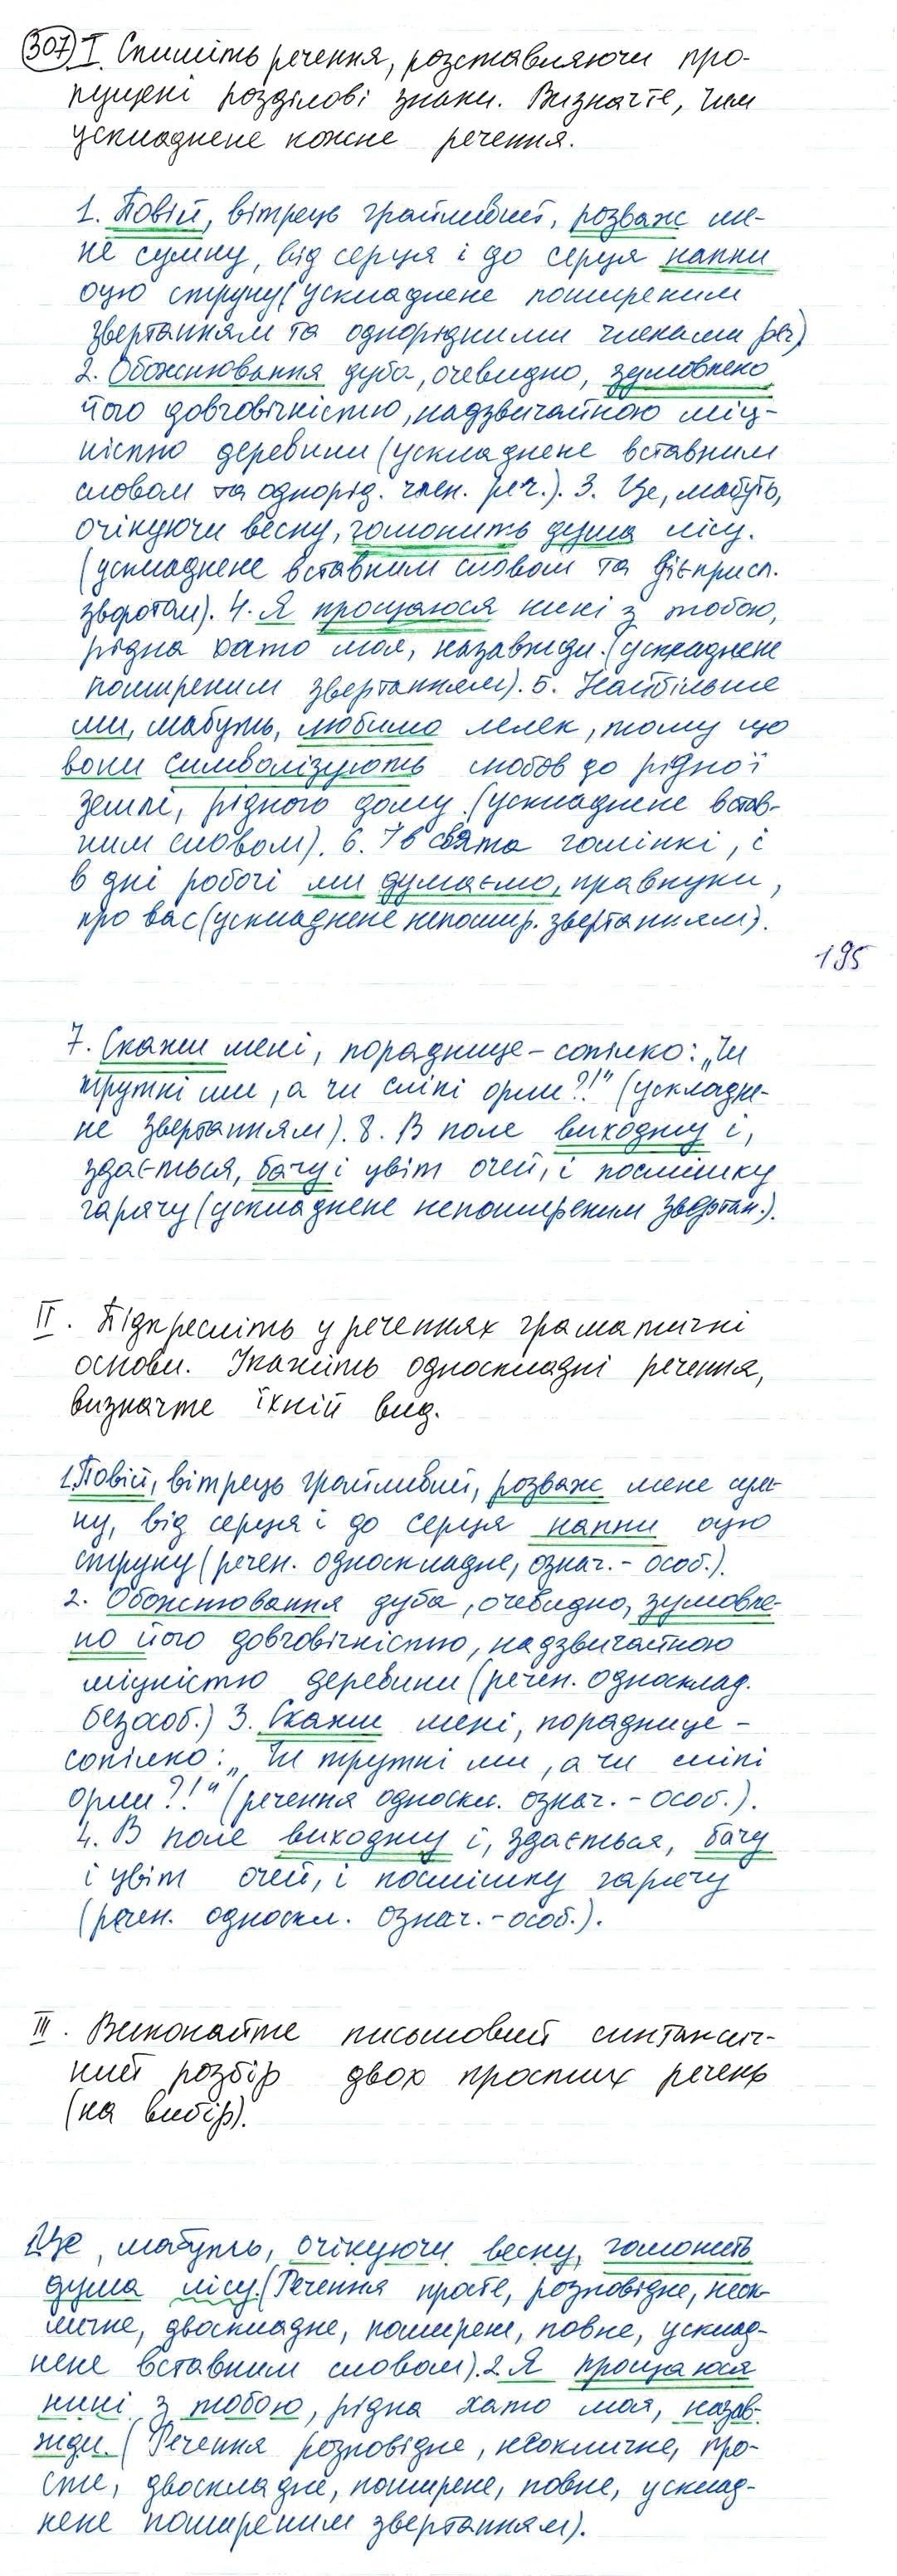 307 I. Спишіть речення, розставляючи про-
пущені розділові знаки. Визначте, чим
ускладнене кожне речення.
1. Повій, вітрець грайливий, розваж ме-
не сумну, від серця і до серця напни
оцю струну (ускладнене поширеним
звертанням та однорідними членами реч.)
2. Обожнювання дуба, очевидно, зумовлено
його довговічністю, надзвичайною міц-
ністю деревини (ускладнене вставним
словом та однорід. член. реч.). 3. Це, мабуть,
очікуючи весну, гомонить душа лісу.
(ускладнене вставним словом та дієприсл.
зворотом). 4. Я прощаюся нині з тобою,
рідна хато моя, назавжди. (ускладнене
поширеним звертанням). 5. Найбільше
ми, мабуть, любимо лелек, тому що
вони символізують любов до рідної
землі, рідного дому. (ускладнене встав-
ним словом). 6. І в свята гомінкі, і
в дні робочі ми думаємо, правнуки,
про вас (ускладнене непошир. звертанням).
195
7. Скажи мені, пораднице-сопілко: „Чи
трутні ми, а чи сліпі орли?!" (ускладне-
не звертанням). 8. В поле виходжу і,
здається, бачу і цвіт очей, і посмішку
гарячу (ускладнене непоширеним звертан.).
II. Підкресліть у реченнях граматичні
основи. Укажіть односкладні речення,
визначте їхній вид.
1. Повій, вітрець грайливий, розваж мене сум-
ну, від серця і до серця напни оцю
струну (речен. односкладне, означ.-особ.).
2. Обожнювання дуба, очевидно, зумовле-
но його довговічністю, надзвичайною
міцністю деревини (речен. односклад.
безособ.) 3. Скажи мені, пораднице-
сопілко: „Чи трутні ми, а чи сліпі
орли?!" (речення односкл. означ.-особ.).
4. В поле виходжу і, здається, бачу
і цвіт очей, і посмішку гарячу
(речен. односкл. означ.-особ.).
III. Виконайте письмовий синтаксич-
ний розбір двох простих речень
(на вибір).
1. Це, мабуть, очікуючи весну, гомонить
душа лісу. (Речення просте, розповідне, неок-
личне, двоскладне, поширене, повне, усклад-
нене вставним словом). 2. Я прощаюся
нині з тобою, рідна хато моя, назав-
жди. (Речення розповідне, неокличне, про-
сте, двоскладне, поширене, повне, усклад-
нене поширеним звертанням).